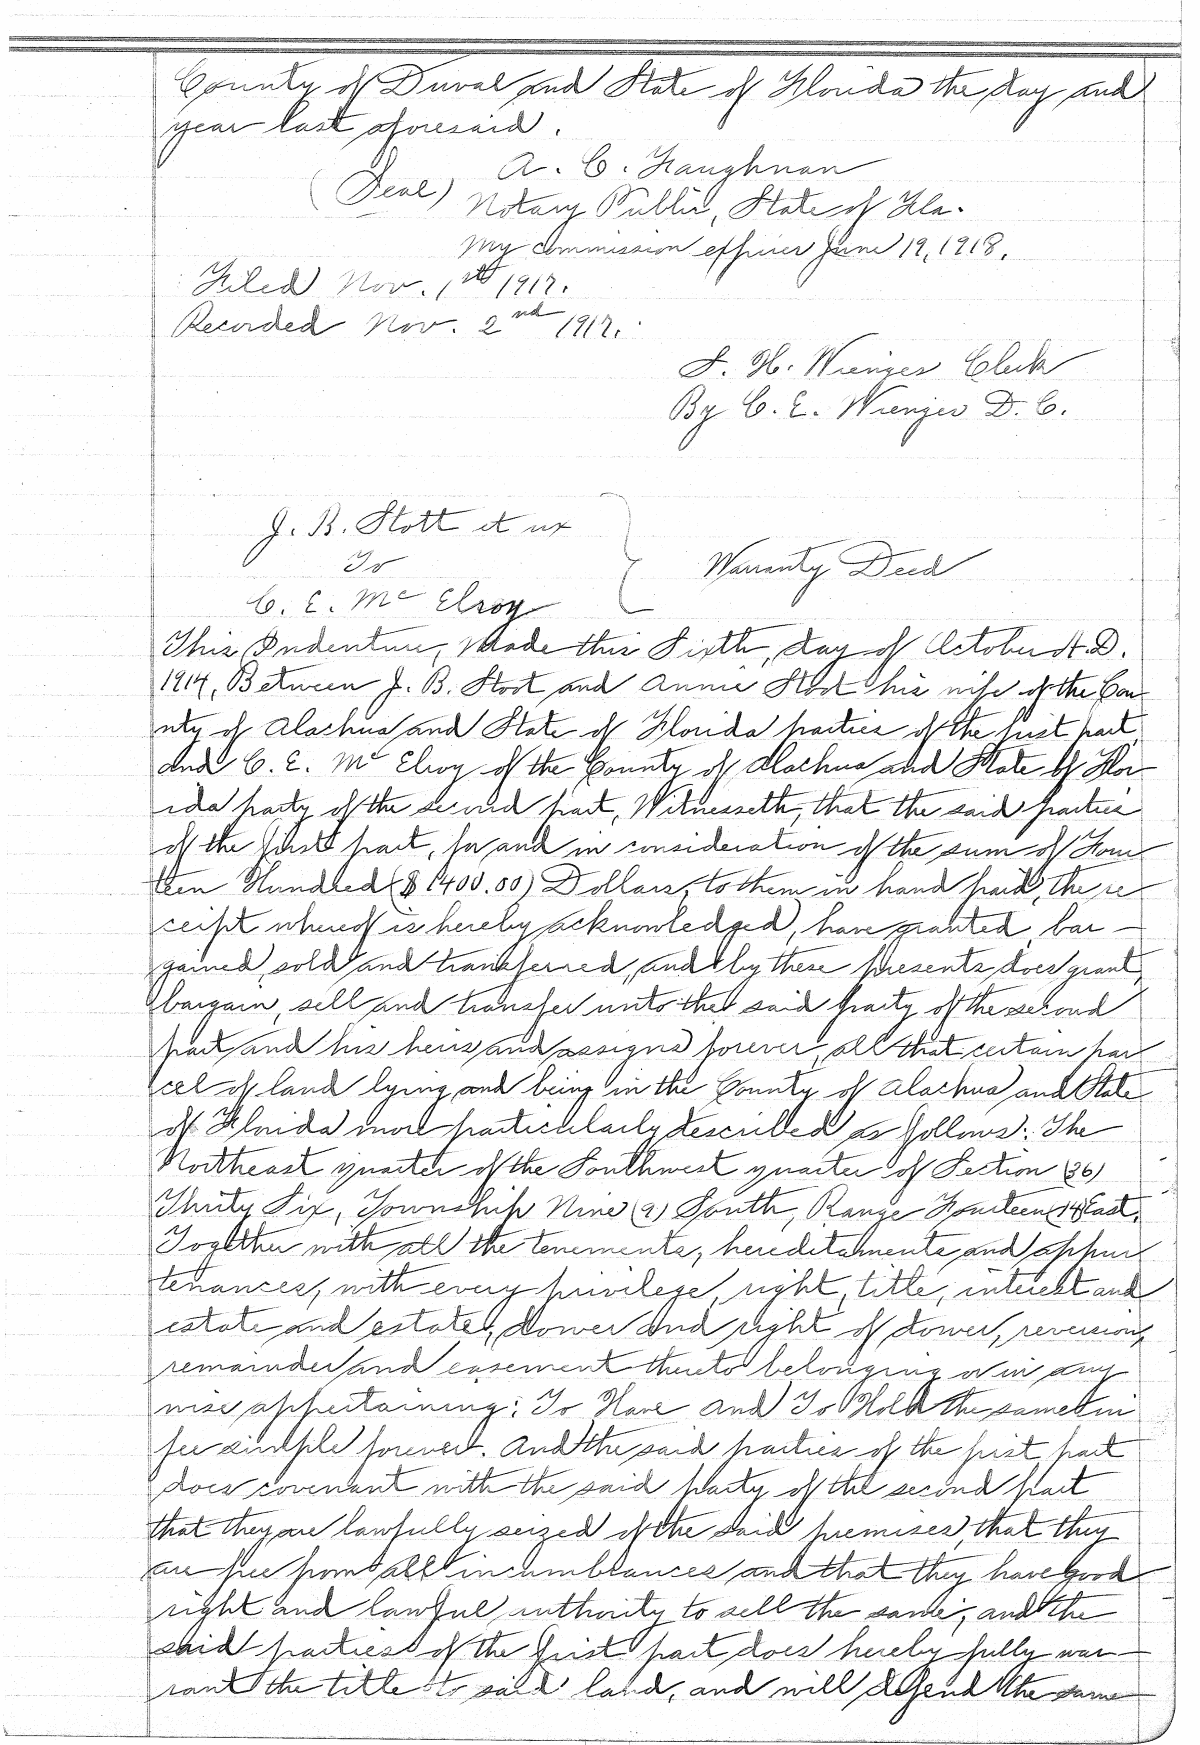 County of Duval and State of Florida the day and
year last aforesaid.
A. C. Faughnan
(Seal) Notary Public, State of Fla.
My commission expires June 19, 1918.
Filed Nov. 1st 1917.
Recorded Nov. 2nd 1917.
S. H. Wienges Clerk
By C. E. Wienges D. C.
J. B. Stott et ux
To
C. E. Mc Elroy
Warranty Deed
This Indenture, Made this Sixth, day of October A.D.
1914, Between J. B. Stott and Annie Stott his wife of the Cou
nty of Alachua and State of Florida parties of the first part,
and C. E. Mc Elroy of the County of Alachua and State of Flor
ida party of the second part, Witnesseth, that the said parties
of the first part, for and in consideration of the sum of Four
teen Hundred ($1400.00) Dollars, to them in hand paid, the re
ceipt whereof is hereby acknowledged, have granted, bar-
gained, sold and transferred, and by these presents does grant,
bargain, sell and transfer unto the said party of the second
part and his heirs and assigns forever, all that certain par
cel of land lying and being in the County of Alachua and State
of Florida more particularly described as follows: The
Northeast quarter of the Southwest quarter of Section (36)
Thirty Six, Township Nine (9) South, Range Fourteen (14) East.
Together with all the tenements, hereditaments and appur
tenances, with every privilege, right, title, interest and
estate and estate, dower and right of dower, reversion,
remainder and easement thereto belonging or in any
wise appertaining: To Have and To Hold the same in
fee simple forever. And the said parties of the first part
does covenant with the said party of the second part
that they are lawfully seized of the said premises, that they
are free from all incumbrances and that they have good
right and lawful authority to sell the same; and the
said parties of the first part does hereby fully war-
rant the title to said land, and will defend the same